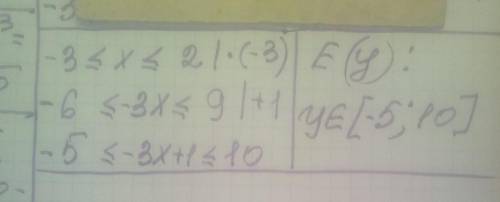 -3
3
=
5
0-
-3 ≤ x ≤ 2 | ·(-3)
-6 ≤ -3x ≤ 9 | +1
-5 ≤ -3x+1 ≤ 10
E(y):
y∈[-5; 10]